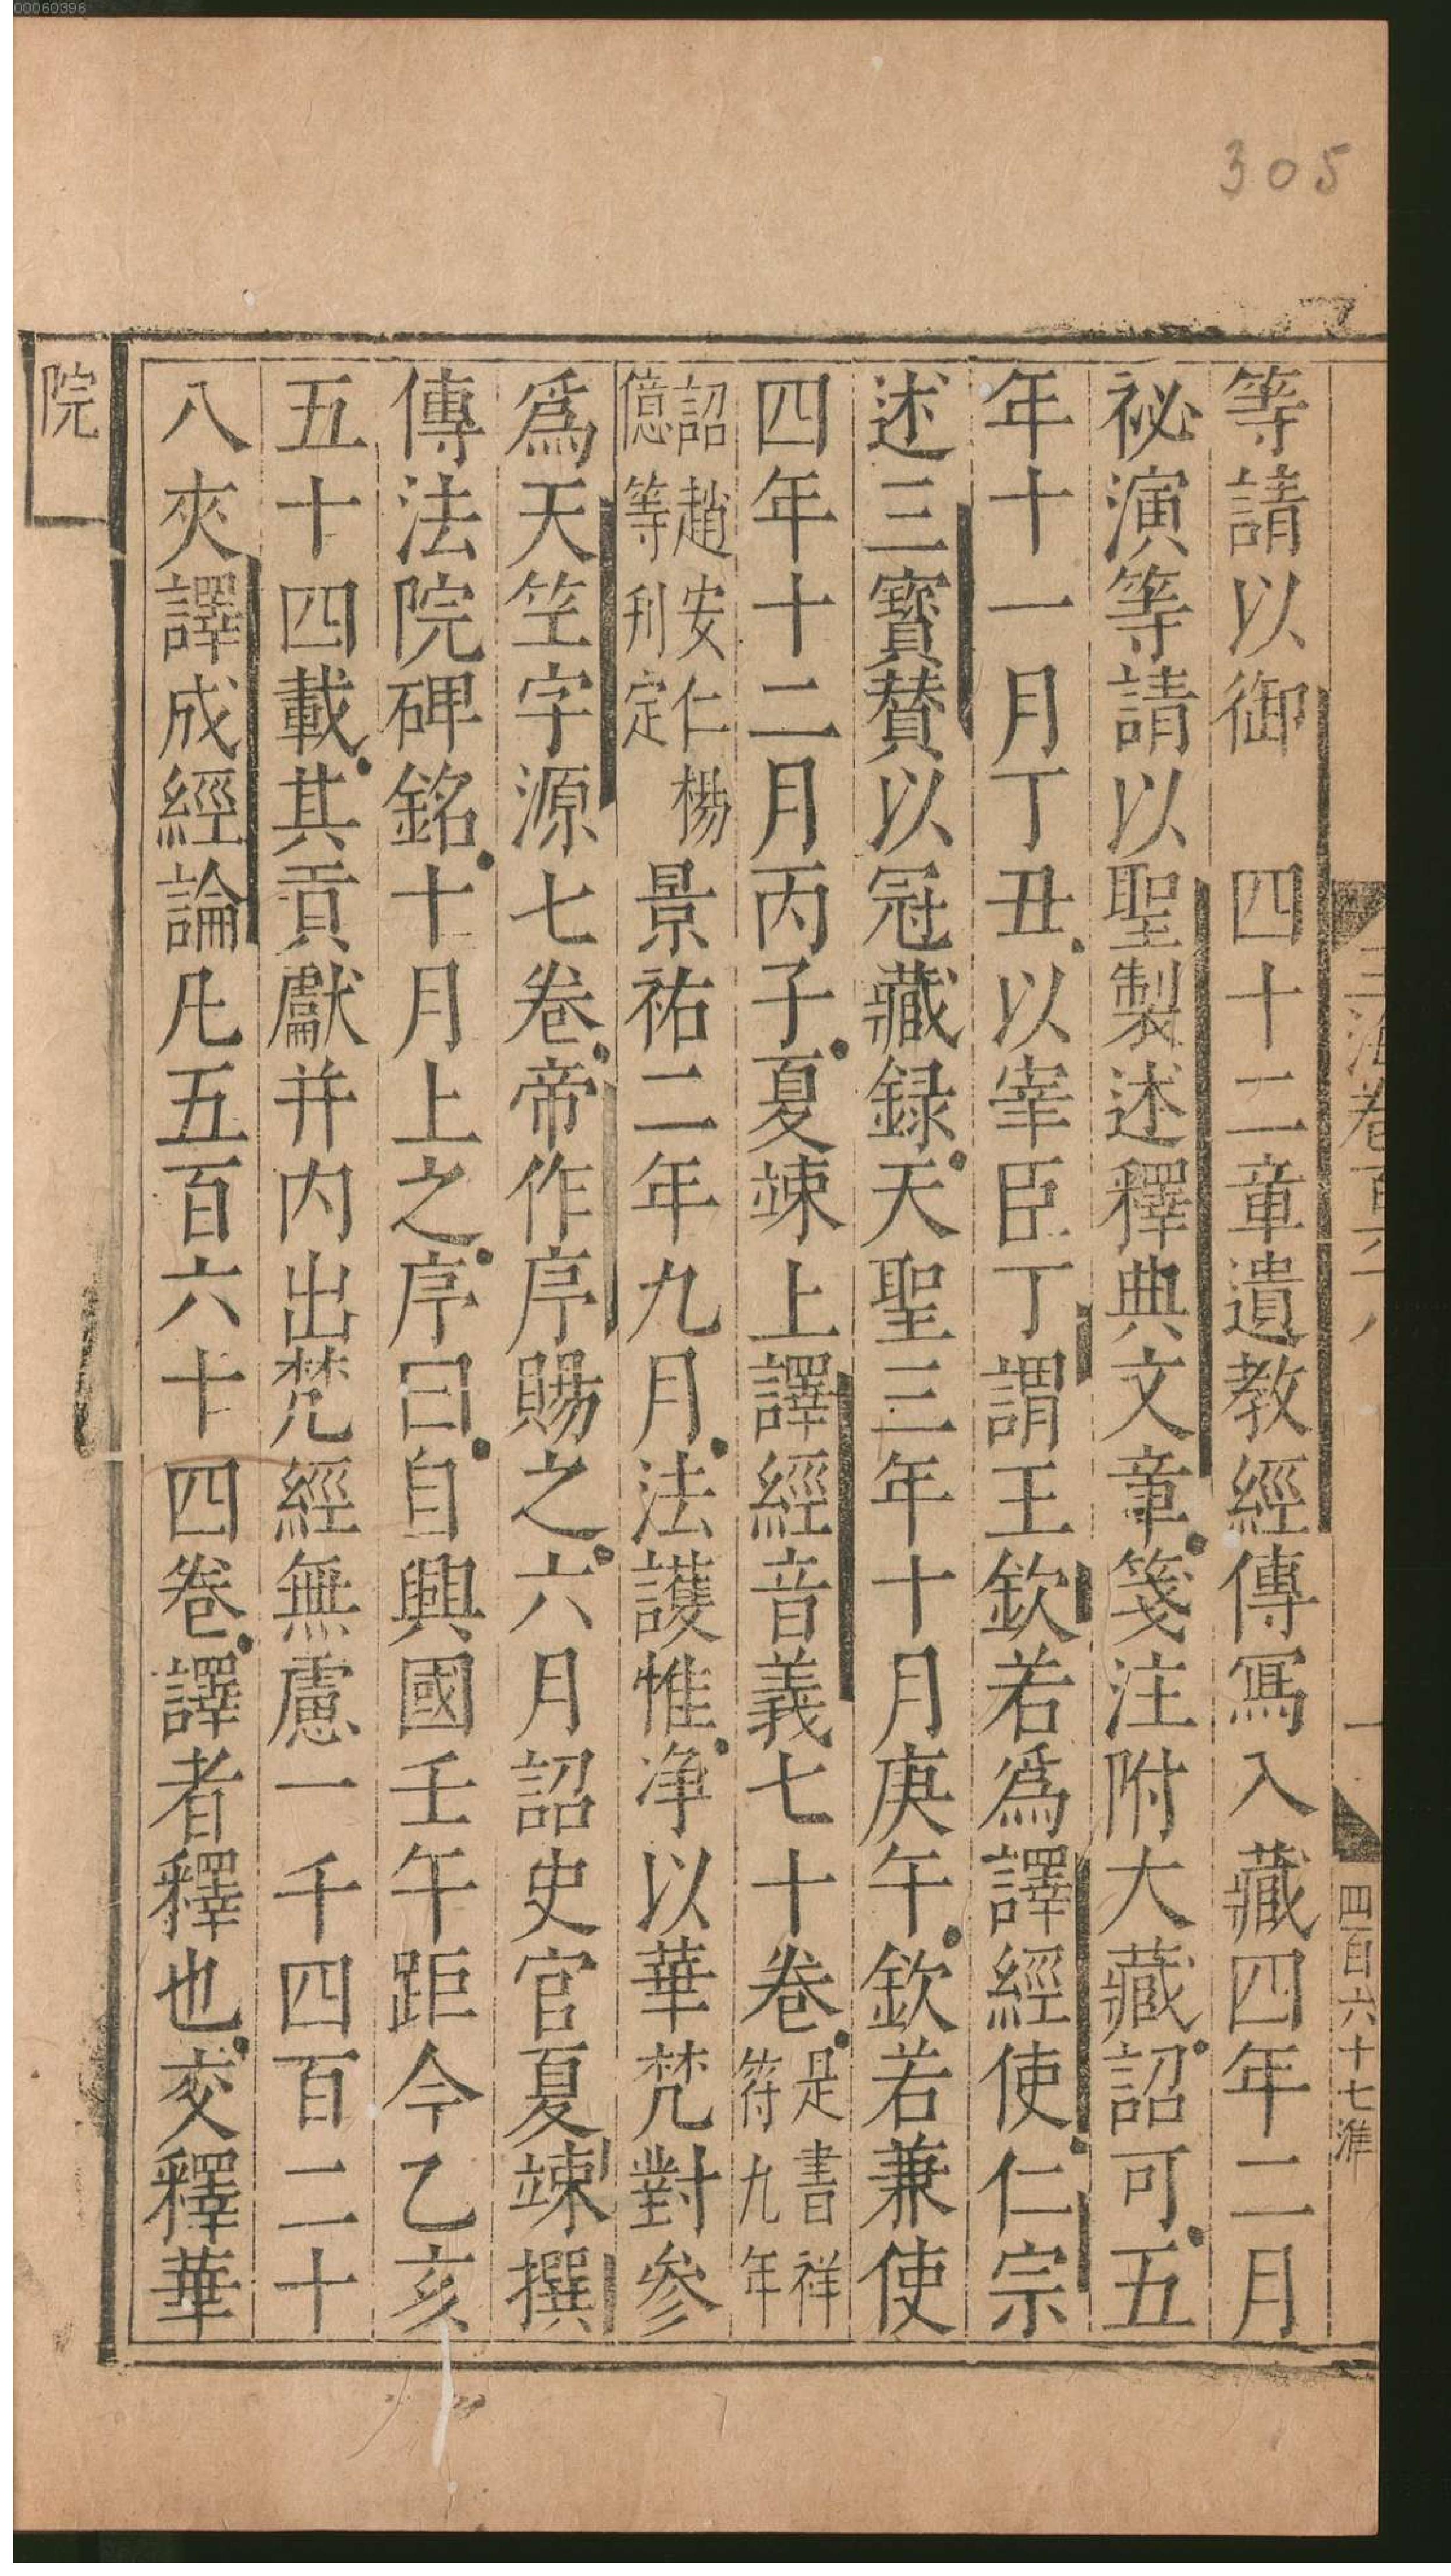 00060396
305
等請以御 四十二章遺教經傳寫入藏四年二月
祕演等請以聖製述釋典文章箋注附大藏詔可五
年十一月丁丑以宰臣丁謂王欽若爲譯經使仁宗
述三寳賛以冠藏録天聖三年十月庚午欽若兼使
四年十二月丙子夏竦上譯經音義七十卷是書祥
符九年
詔趙安仁楊
億等刋定景祐二年九月法護惟净以華梵對參
爲天竺字源七卷帝作序賜之六月詔史官夏竦撰
傳法院碑銘十月上之序曰自興國壬午距今乙亥
五十四載其貢獻并内出梵經無慮一千四百二十
八夾譯成經論凡五百六十四卷譯者釋也交釋華
院
卷百六八
一
四百六十七